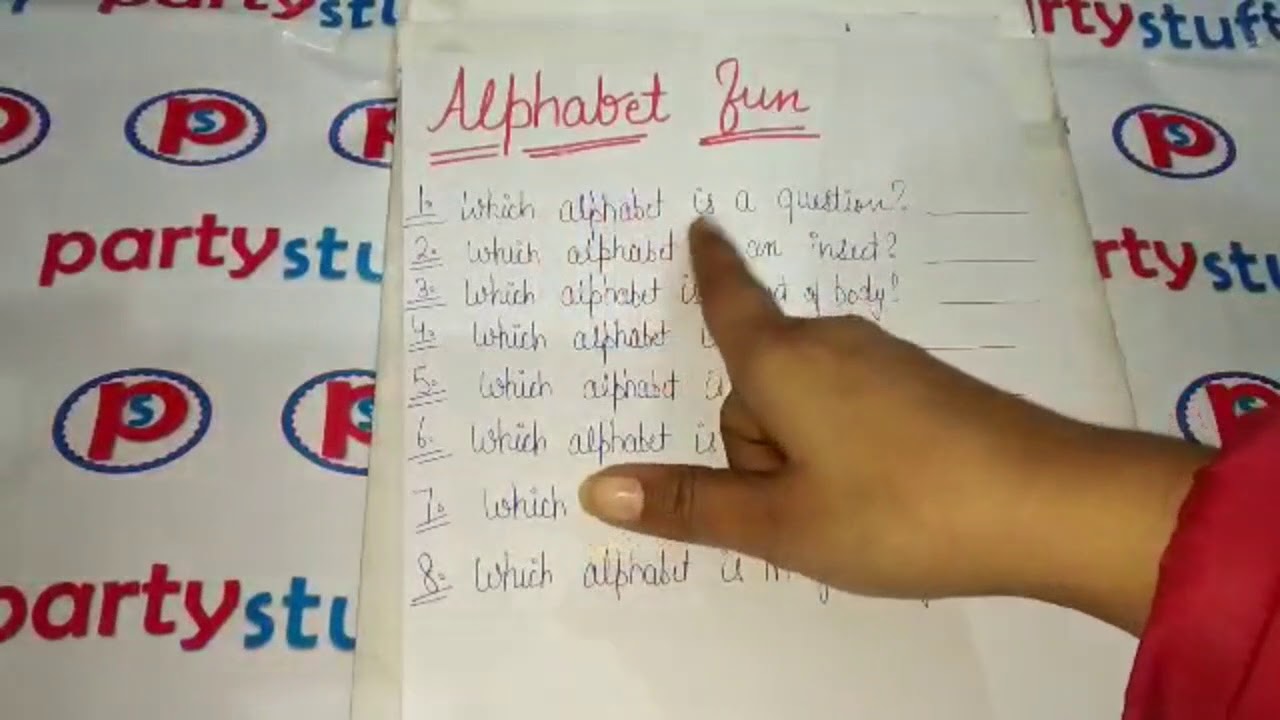 partystuff
Alphabet Fun
1. Which alphabet is a question?
2. Which alphabet an insect?
3. Which alphabet is of body?
4. Which alphabet
5. Which alphabet
6. Which alphabet is
7. Which
8. Which alphabet is
partystu
partystu
rtystuff
rtystu
PS
PS
PS
PS